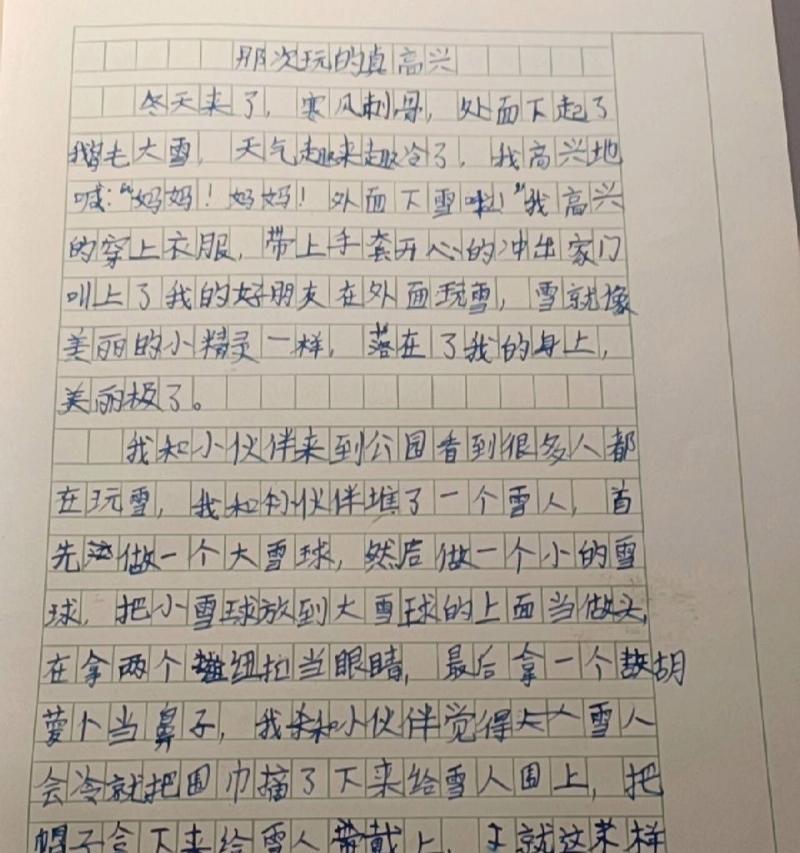 那次玩的真高兴
冬天来了，寒风刺骨，处面下起了
鹅毛大雪，天气越来越冷了，我高兴地
喊：“妈妈！妈妈！外面下雪啦！”我高兴
的穿上衣服，带上手套开心的冲出家门
叫上了我的好朋友在外面玩雪，雪就像
美丽的小精灵一样，落在了我的身上，
美丽极了。
我和小伙伴来到公园看到很多人都
在玩雪，我和小伙伴堆了一个雪人，首
先做一个大雪球，然后做一个小的雪
球，把小雪球放到大雪球的上面当做头，
在拿两个纽扣当眼睛，最后拿一个胡
萝卜当鼻子，我和小伙伴觉得雪人
会冷就把围巾摘了下来给雪人围上，把
帽子拿下来给雪人戴上，就这样